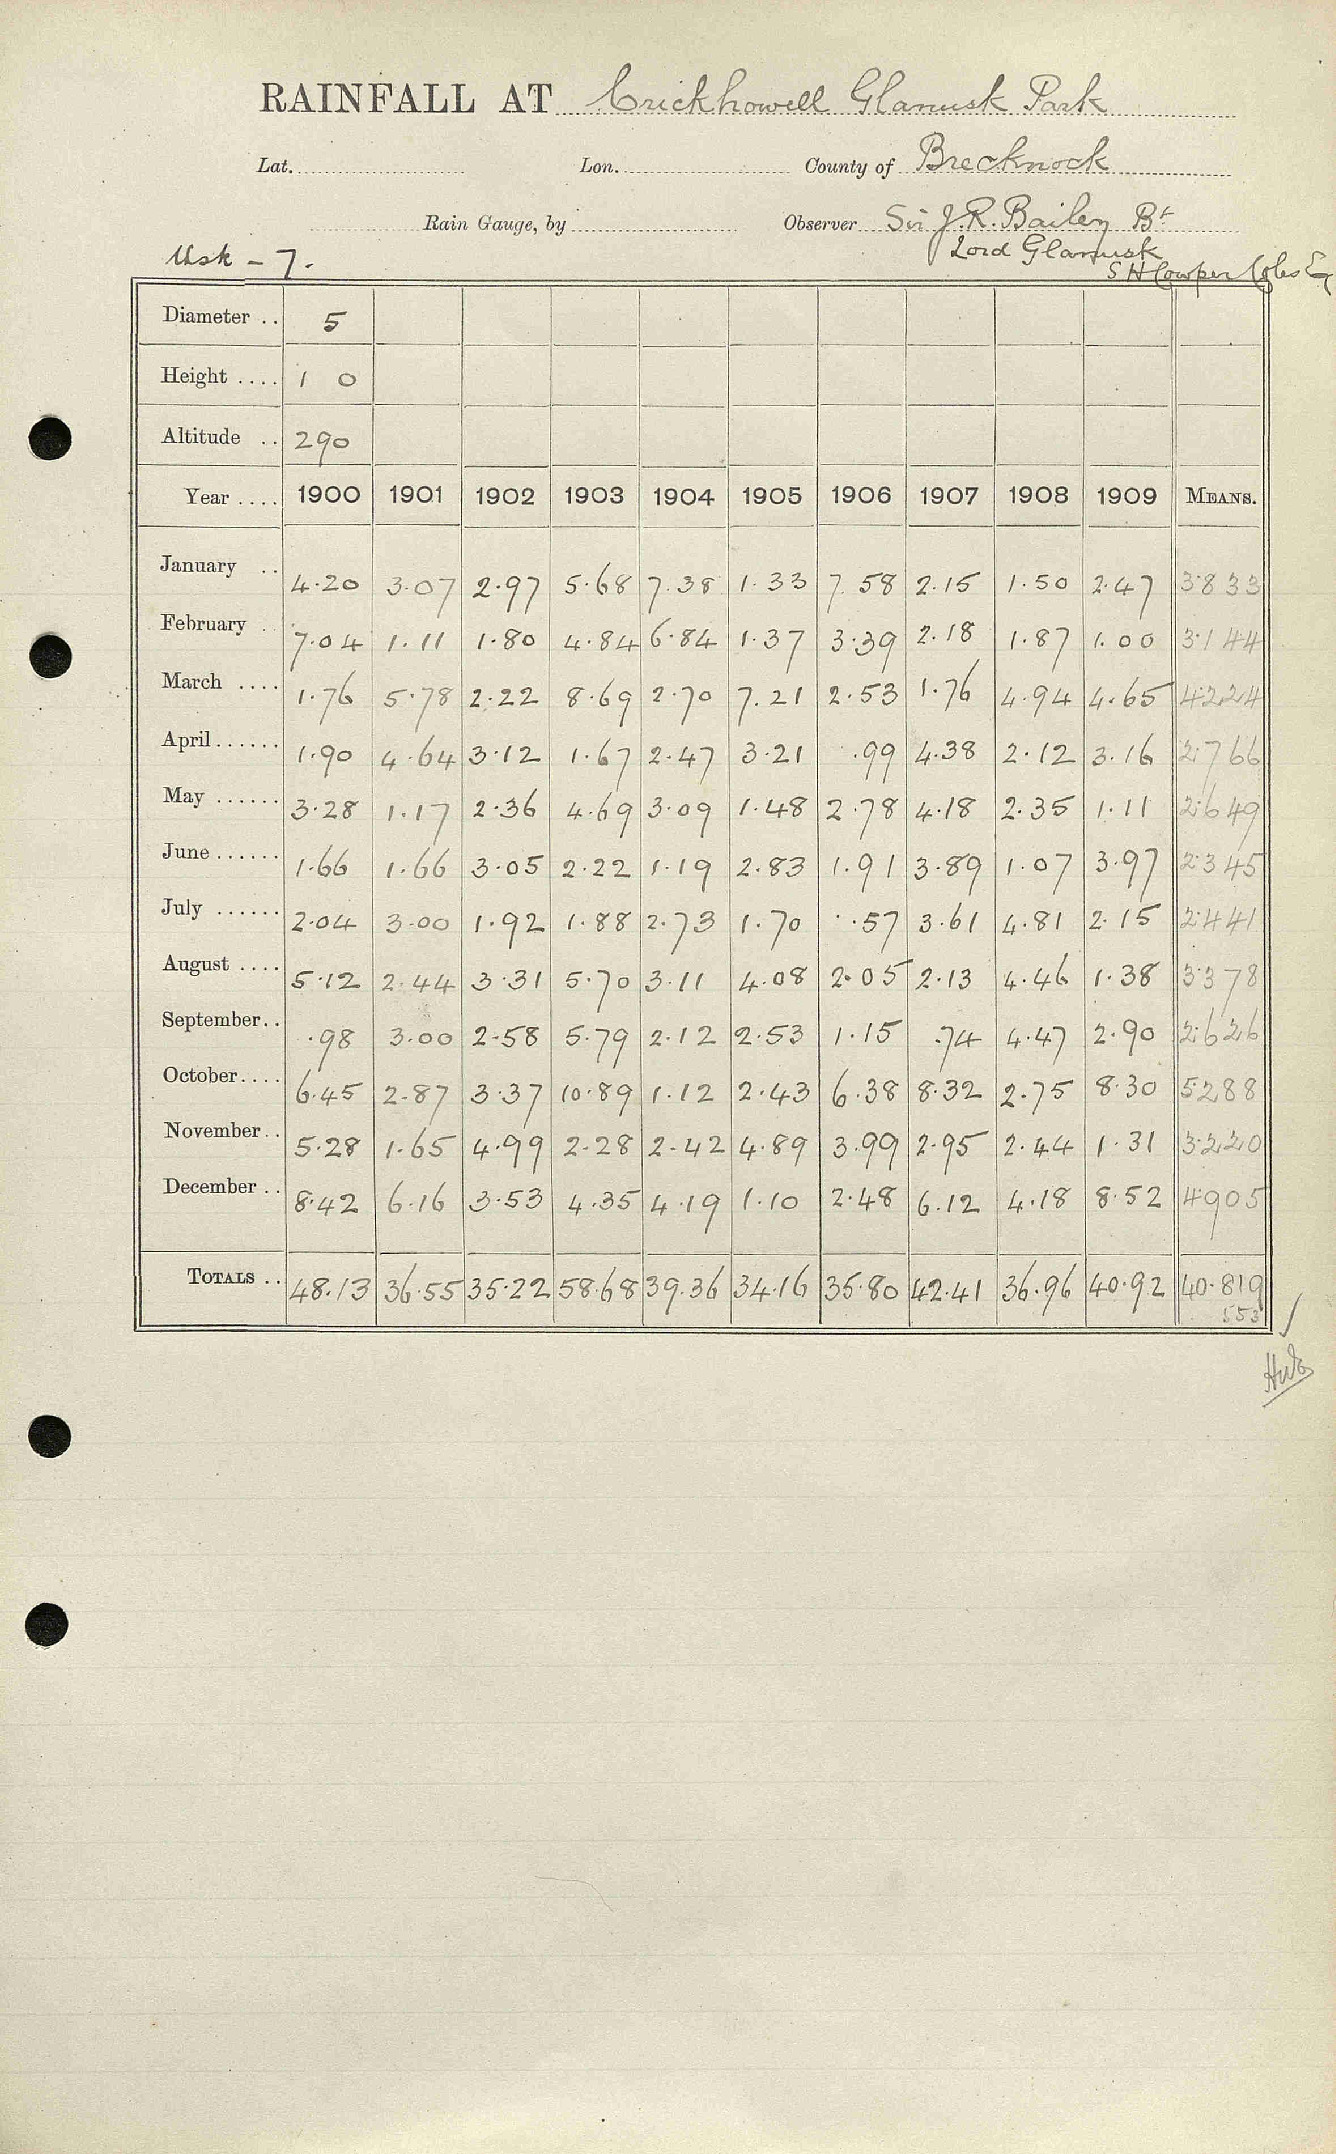 RAINFALL AT Crickhowell Glanusk Park
Lat. Lon. County of Brecknock
Rain Gauge, by Observer Sir J.R. Bailey Bt
Lord Glanusk
Usk - 7. S H Cowper Coles Esq
Diameter .. 5
Height .... 1 0
Altitude .. 290
Year .... 1900 1901 1902 1903 1904 1905 1906 1907 1908 1909 MEANS.
January .. 4.20 3.07 2.97 5.68 7.38 1.33 7.58 2.15 1.50 2.47 3.833
February . 7.04 1.11 1.80 4.84 6.84 1.37 3.39 2.18 1.87 1.00 3.144
March .... 1.76 5.78 2.22 8.69 2.70 7.21 2.53 1.76 4.94 4.65 4.224
April ...... 1.90 4.64 3.12 1.67 2.47 3.21 .99 4.38 2.12 3.16 2.766
May ...... 3.28 1.17 2.36 4.69 3.09 1.48 2.78 4.18 2.35 1.11 2.649
June ...... 1.66 1.66 3.05 2.22 1.19 2.83 1.91 3.89 1.07 3.97 2.345
July ...... 2.04 3.00 1.92 1.88 2.73 1.70 .57 3.61 4.81 2.15 2.441
August .... 5.12 2.44 3.31 5.70 3.11 4.08 2.05 2.13 4.46 1.38 3.378
September .. .98 3.00 2.58 5.79 2.12 2.53 1.15 .74 4.47 2.90 2.626
October .... 6.45 2.87 3.37 10.89 1.12 2.43 6.38 8.32 2.75 8.30 5.288
November .. 5.28 1.65 4.99 2.28 2.42 4.89 3.99 2.95 2.44 1.31 3.220
December .. 8.42 6.16 3.53 4.35 4.19 1.10 2.48 6.12 4.18 8.52 4.905
TOTALS .. 48.13 36.55 35.22 58.68 39.36 34.16 35.80 42.41 36.96 40.92 40.819
553